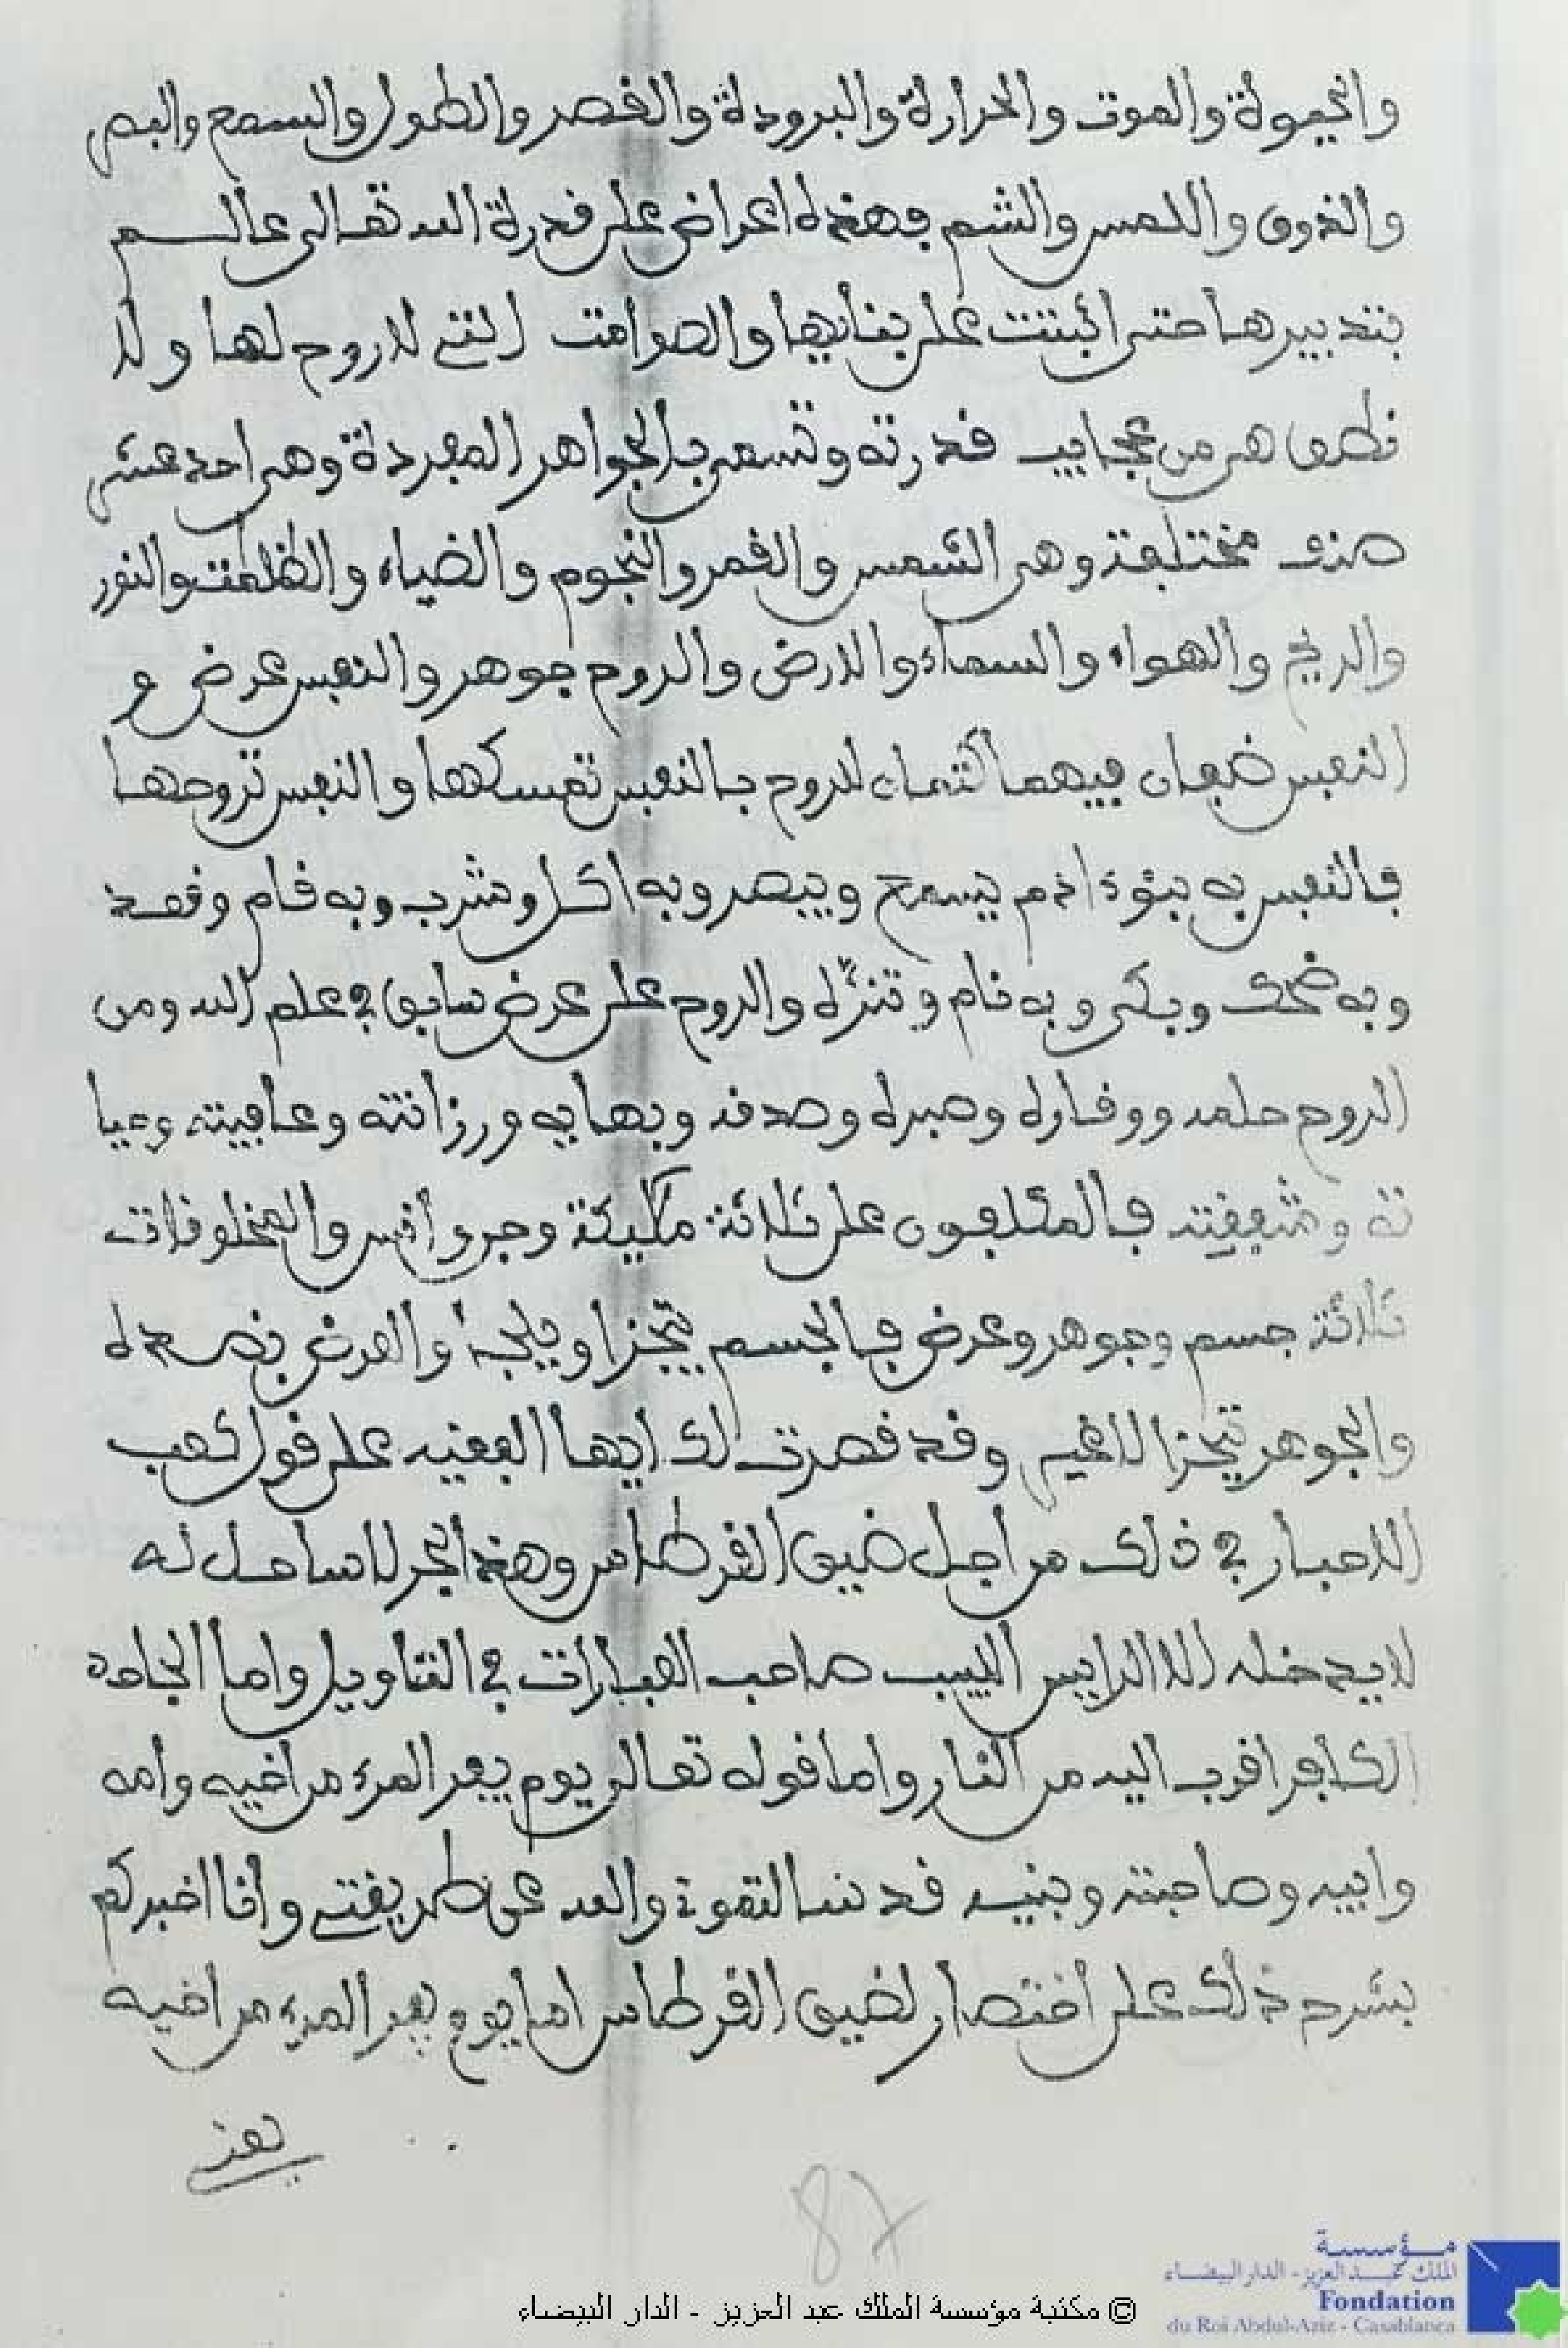 والحيوة والموت والحرارة والبرودة والقصر والطول والسمع والبصر
والذوق واللمس والشم فهذه اعراض على قدرة الله تعالى عالم
بتدبيرها حتى اثبتت على بنائها والصوامت التي لا روح لها ولا
نطق هي من عجايب قدرته وتسمى بالجواهر المفردة وهي احد عشر
صنف مختلفة وهي الشمس والقمر والنجوم والضياء والظلمت والنور
والريح والهواء والسماء والارض والروح جوهر والنفس عرض و
النفس ضعان فيهما اكتمان للروح بالنفس تمسكها والنفس تروحها
فالنفس به بنوء ادم يسمع ويبصر وبه اكل وشرب وبه قام وقعد
وبه ضحك وبكى وبه نام وتنزه والروح على عرض سابق في علم الله ومن
الروح حلمه ووقاره وصبره وصدقه وبهايه ورزانته وعافيته وحيا
ته وشفقته فالمكلفون على ثلاثة مليكة وجن وأنس والمخلوقات
ثلاثة جسم وجوهر وعرض فالجسم يتجزا ويلجا والعرض بضده
والجوهر يتجزا لا غير وقد قصرت لك ايها الفقيه على قول كعب
الاحبار في ذلك من اجل ضيق القرطاس وهذا بحر لا ساحل له
لا يدخله الا الرايس اللبيب صاحب العبارات في التاويل واما الجاحد
الكافر اقرب اليه من النار واما قوله تعالى يوم يفر المرء من اخيه وأمه
وابيه وصاحبته وبنيه قد نسا القوة والله عن طريقتي وأنا اخبركم
بشرح ذلك على اختصار لضيق القرطاس اما يوم يفر المرء من اخيه
يعني
87
مؤسسة
الملك عبد العزيز - الدار البيضاء
Fondation
du Roi Abdul-Aziz - Casablanca
© مكتبة مؤسسة الملك عبد العزيز - الدار البيضاء